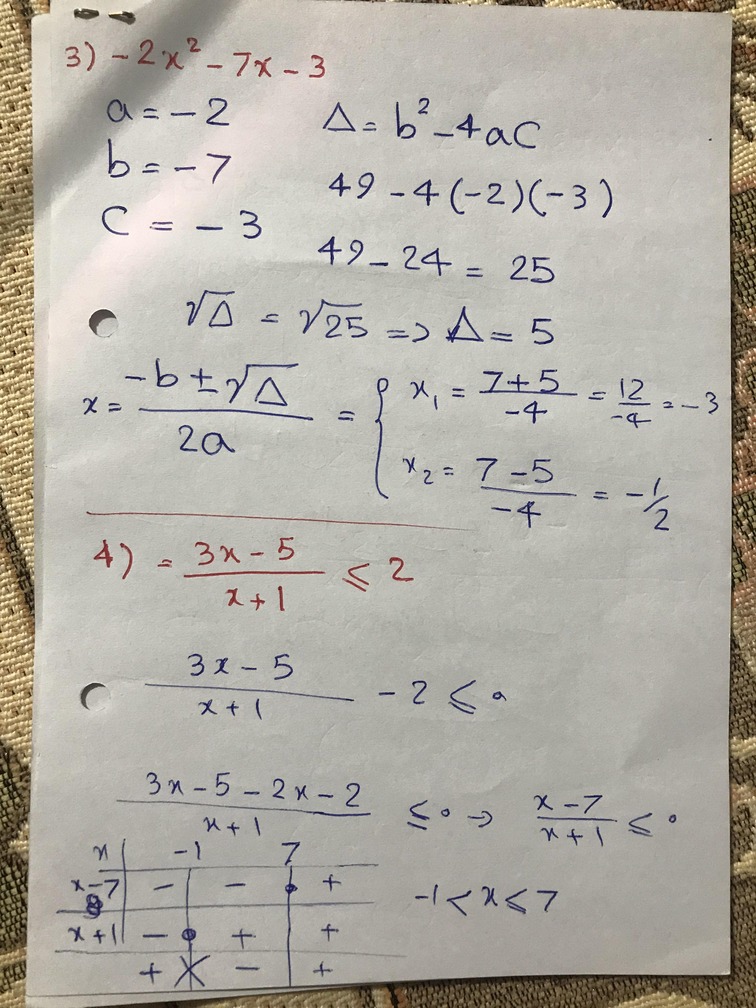 3) -2x² - 7x - 3
a = -2
Δ = b² - 4aC
b = -7
49 - 4(-2)(-3)
C = -3
49 - 24 = 25
√Δ = √25 => Δ = 5
x = (-b ± √Δ)/2a = { x₁ = (7+5)/-4 = 12/-4 = -3
x₂ = (7-5)/-4 = -1/2
4) = (3x-5)/(x+1) ≤ 2
(3x-5)/(x+1) - 2 ≤ 0
(3x-5-2x-2)/(x+1) ≤ 0 → (x-7)/(x+1) ≤ 0
x | -1 7
x-7 | - | - | +
-1 < x ≤ 7
x+1 | - | + | +
+ X - | +